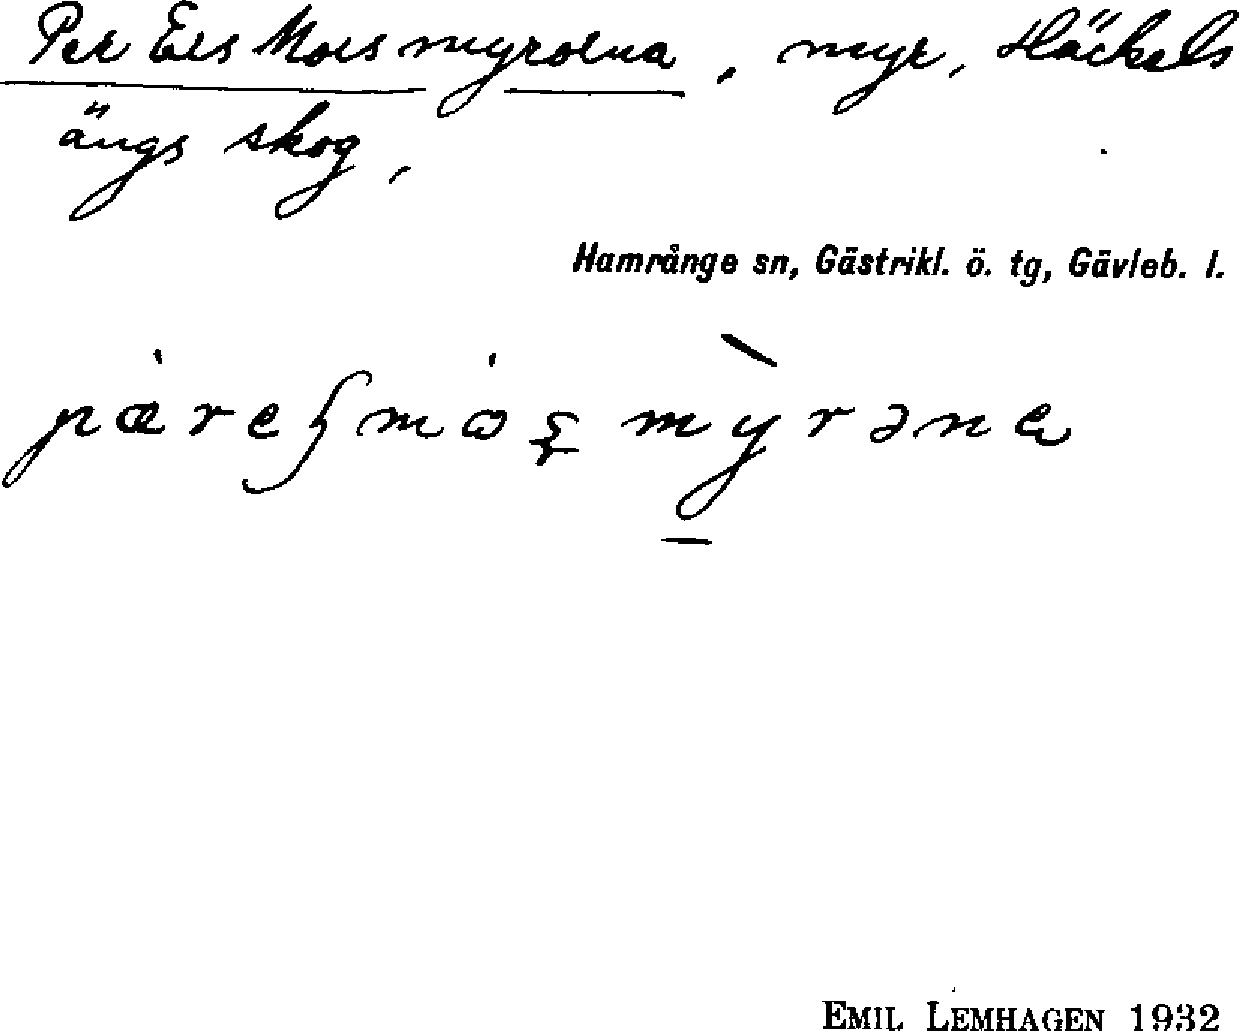 Per Ers Morsmyrorna, myr, Häckels
ängs skog,
Hamrånge sn, Gästrikl. ö. tg, Gävleb. l.
EMIL LEMHAGEN 1932